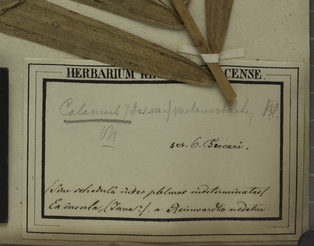 HERBARIUM RE CENSE.
Calamus
Bl.
scr. O. Beccari.
(Sine schedula inter palmas indeterminatas)
Ex insula, (Java?) a Reinwardtio